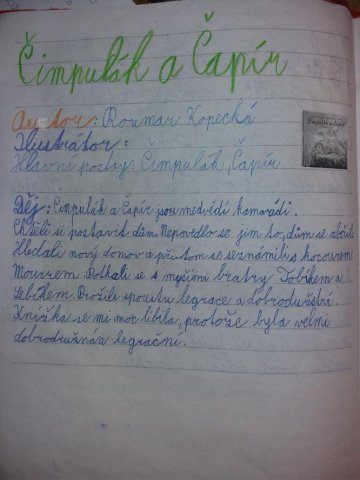 Čimpulák a Čapír
Autor: Rozmar Kopecká
Ilustrátor:
Hlavní postavy: Čimpulák, Čapír
Děj: Čimpulák a Čapír jsou medvědí kamarádi.
Chtěli si postavit dům. Nepovedlo se jim to, dům se
Hledali nový domov a přitom se seznámili s kocourem
Mourrem. Potkali se s myšími bratry Tobíkem a
Lebíkem. Prožili spoustu legrace a dobrodružství.
Knížka se mi moc líbila, protože byla velmi
dobrodružná a legrační.